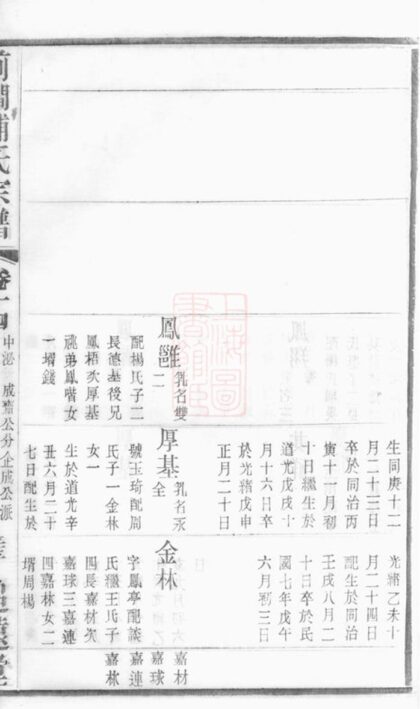 生同庚十二
月二十三日
卒於同治丙
寅十一月初
十日繼生於
道光戊戌十
月十六日卒
於光緒戊申
正月二十日
光緒乙未十
月二十四日
配生於同治
壬戌八月二
十日卒於民
國七年戊午
六月初三日
鳳雝 乳名雙二
配楊氏子二
長德基後兄
鳳梧次厚基
祧弟鳳喈女
一壻錢
厚基 乳名永全
號玉琦配周
氏子一金林
女一
生於道光辛
丑六月二十
七日配生於
金林
字鳳亭配談
氏繼王氏子
四長嘉材次
嘉球三嘉連
四嘉林女二
壻周楊
嘉材
嘉球
嘉連
嘉林
前澗浦氏宗譜
卷十四
中泌 成齋公分企成公派
追遠堂